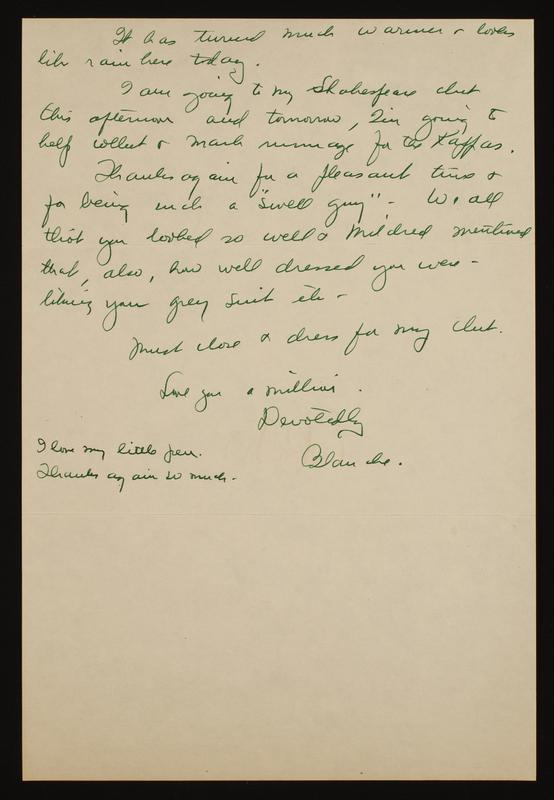 It has turned much warmer & looks
like rain here today.
I am going to my Shakespeare club
this afternoon and tomorrow, I'm going to
help collect & mark rummage for the Kappas.
Thanks again for a pleasant time &
for being such a "swell guy" - We all
thot you looked so well & Mildred mentioned
that, also, how well dressed you were -
liking your grey suit etc -
Must close & dress for my club.
Love you a million.
Devotedly
Blanche.
I love my little pen.
Thanks again so much.